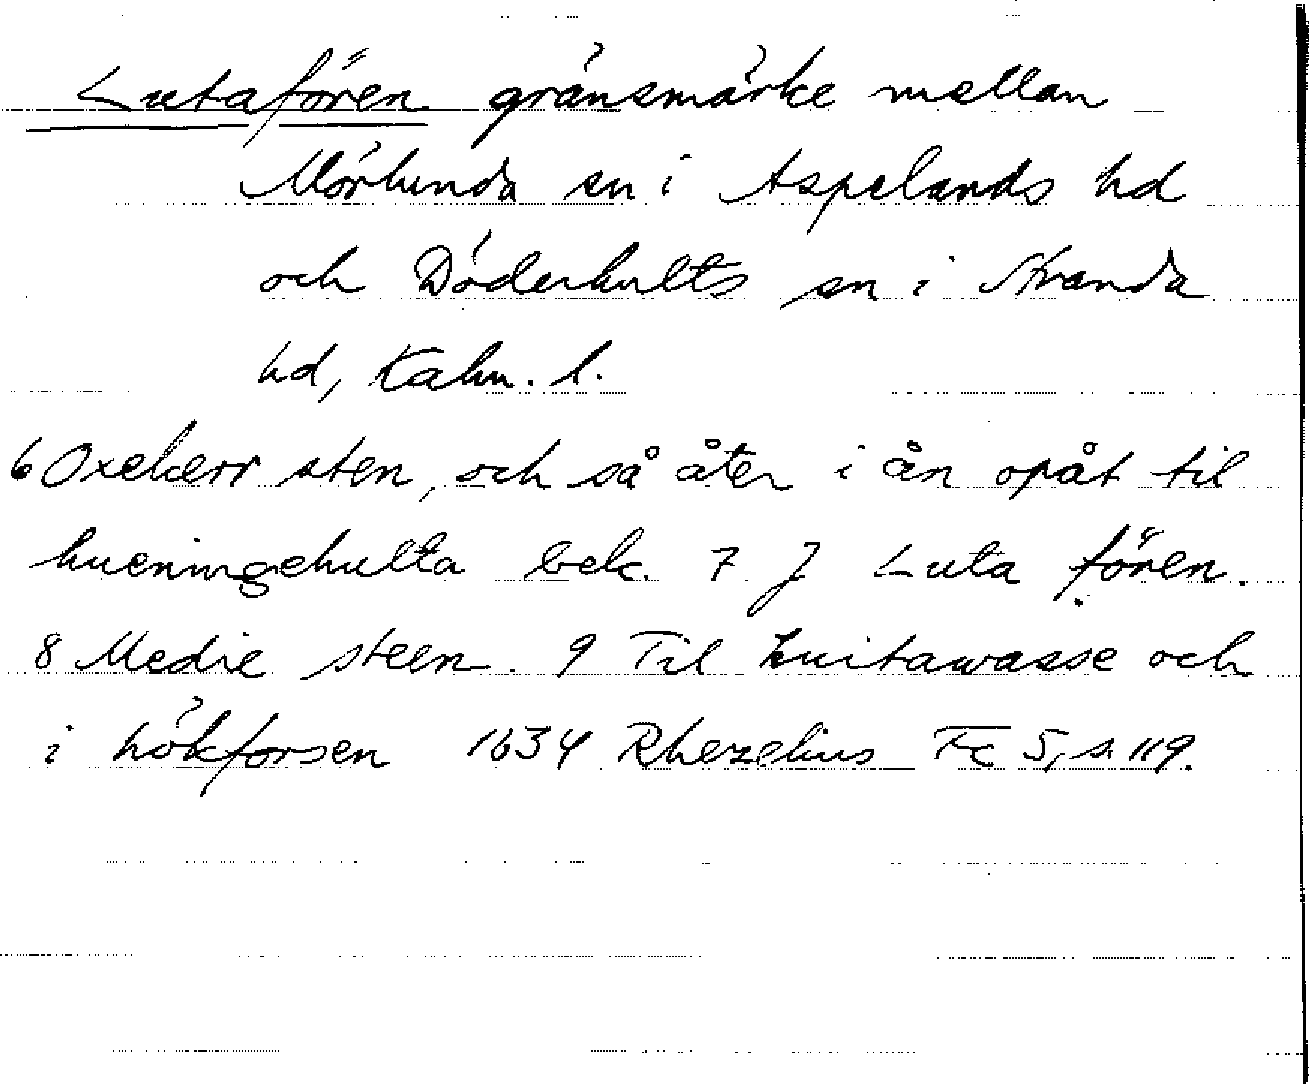 Lutafören gränsmärke mellan
Mörlunda sn i Aspelands hd
och Döderhults sn i Stranda
hd, Kalm. l.
6 Oxekerr sten, och så åter i ån opåt til
hueningehulta bek. 7 J Luta fören.
8 Medie steen. 9 Til huitawasse och
i hökforsen 1634 Rhezelius Fc 5, s. 119.